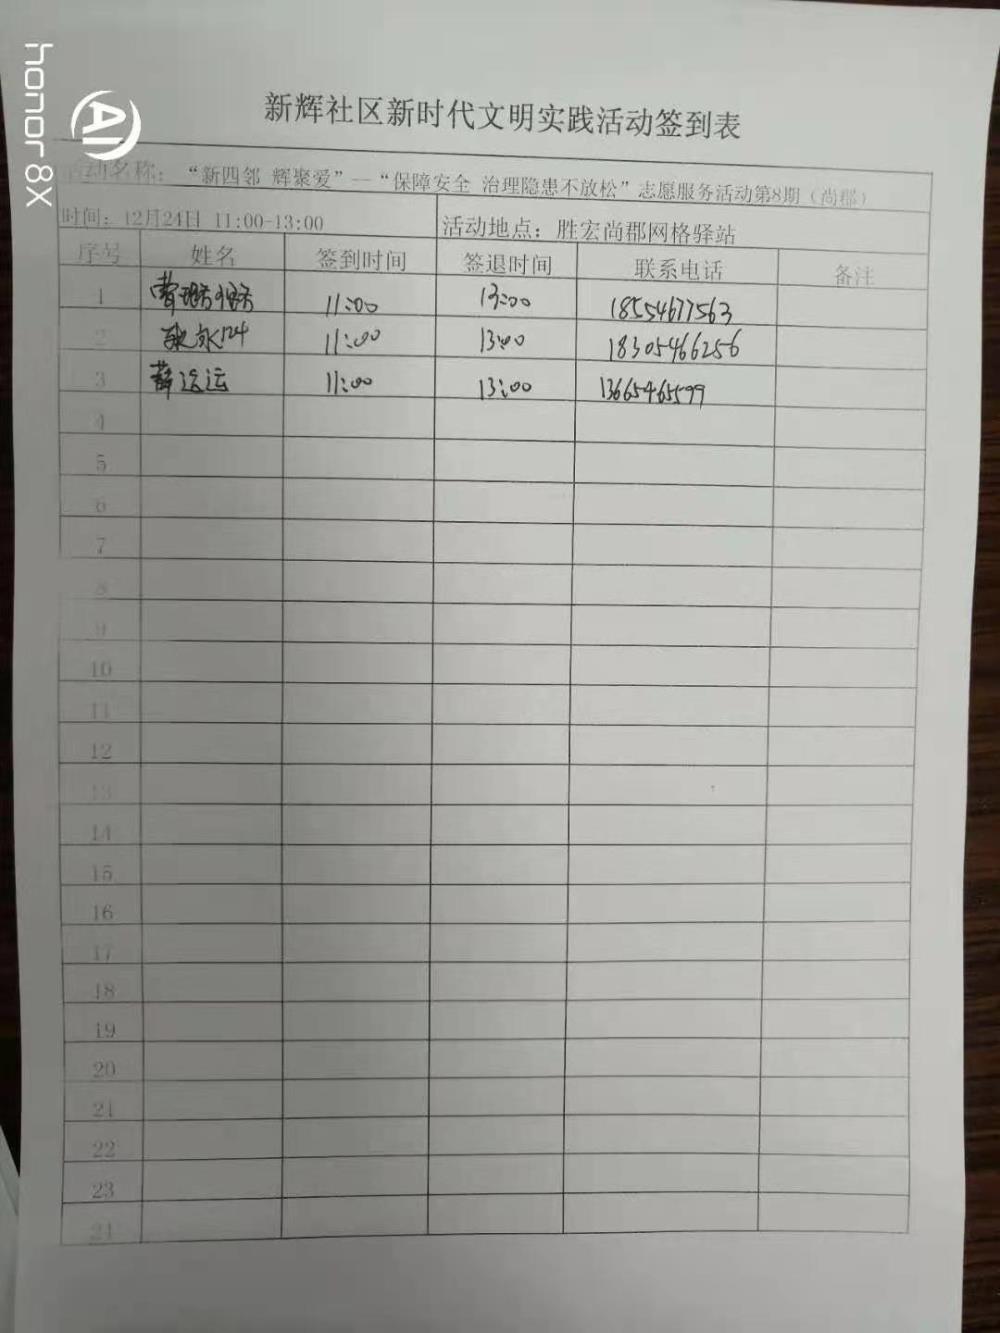 honor 8X
AI
新辉社区新时代文明实践活动签到表
活动名称：“新四邻 辉聚爱”—“保障安全 治理隐患不放松”志愿服务活动第8期（尚郡）
时间：12月24日 11:00-13:00 活动地点：胜宏尚郡网格驿站
序号 姓名 签到时间 签退时间 联系电话 备注
1 曹璐璐 11:00 13:00 18554677563
2 11:00 13:00 18305466256
3 薛运运 11:00 13:00 13665465599
4
5
6
7
8
9
10
11
12
13
14
15
16
17
18
19
20
21
22
23
24